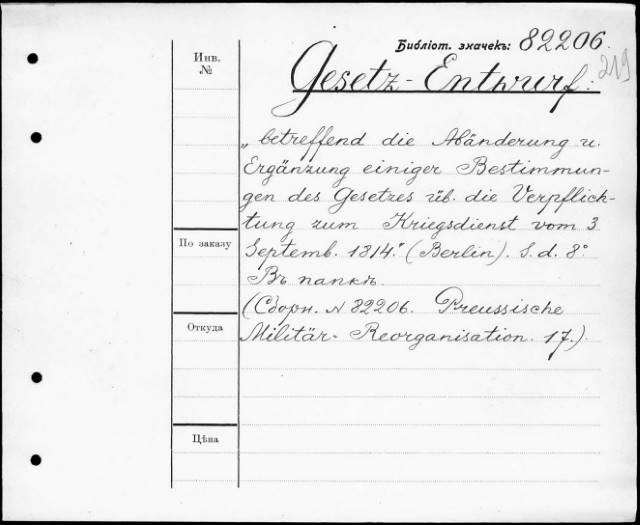 Библіот. значекъ: 82206.
219
Инв.
№
Gesetz-Entwurf:
„betreffend die Abänderung u.
Ergänzung einiger Bestimmun-
gen des Gesetzes üb. die Verpflich-
tung zum Kriegsdienst vom 3
По заказу
Septemb. 1814." (Berlin). S. d. 8°
Въ папкѣ.
(Сборн. № 82206. Preussische
Откуда
Militär-Reorganisation. 17.)
Цѣна